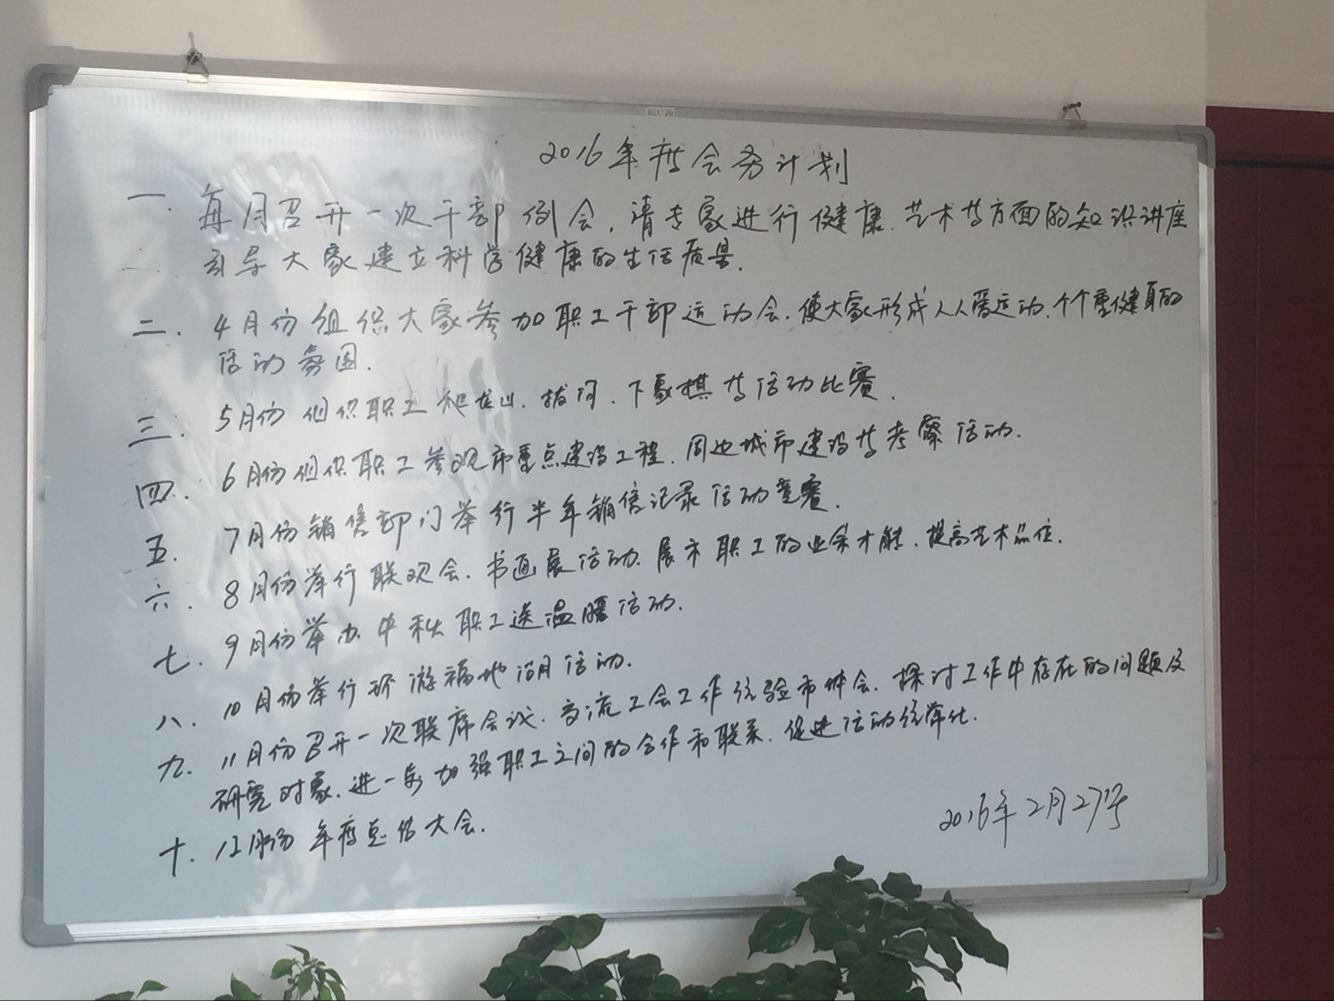 2016年度会务计划
一. 每月召开一次干部例会,请专家进行健康.艺术等方面的知识讲座
引导大家建立科学健康的生活质量.
二. 4月份组织大家参加职工干部运动会.使大家形成人人爱运动.个个重健身的
活动氛围.
三. 5月份组织职工 龙山.拔河.下象棋等活动比赛.
四. 6月份组织职工参观市重点建设工程.周边城市建设等考察活动.
五. 7月份销售部门举行半年销售记录活动竞赛.
六. 8月份举行联欢会.书画展活动.展示职工的业余才能.提高艺术品位.
七. 9月份举办中秋职工送温暖活动.
八. 10月份举行环游福地湖活动.
九. 11月份召开一次联席会议.交流工会工作经验 体会.探讨工作中存在的问题及
研究对象.进一步加强职工之间的合作和联系.促进活动经常化.
十. 12月份年度总结大会.
2016年2月27号